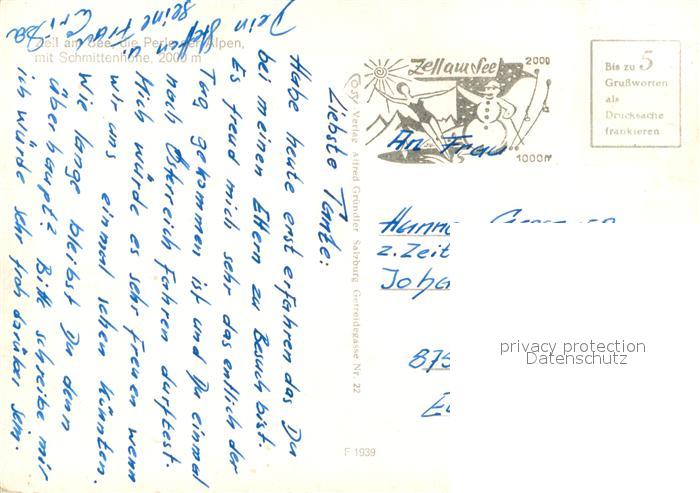 Zell am See, die Perle der Alpen,
mit Schmittenhöhe, 2000 m
Liebste Tante:
Habe heute erst erfahren das Du
bei meinen Eltern zu Besuch bist.
Es freud mich sehr das entlich der
Tag gekommen ist und Du einmal
nach Österreich Fahren durftest.
Mich würde es sehr Freuen wenn
wir uns einmal sehen könnten.
Wie lange bleibst Du denn
überhaupt? Bitt schreibe mir
ich würde sehr froh darüber sein.
Dein Steffen u.
seine Frau
Cosy Verlag Alfred Gründler Salzburg Getreidegasse Nr. 22
F 1939
Zell am See
2000
1000m
Bis zu 5
Grußworten
als
Drucksache
frankieren
An Frau
Hanna
z. Zeit
Joha
875
privacy protection
Datenschutz